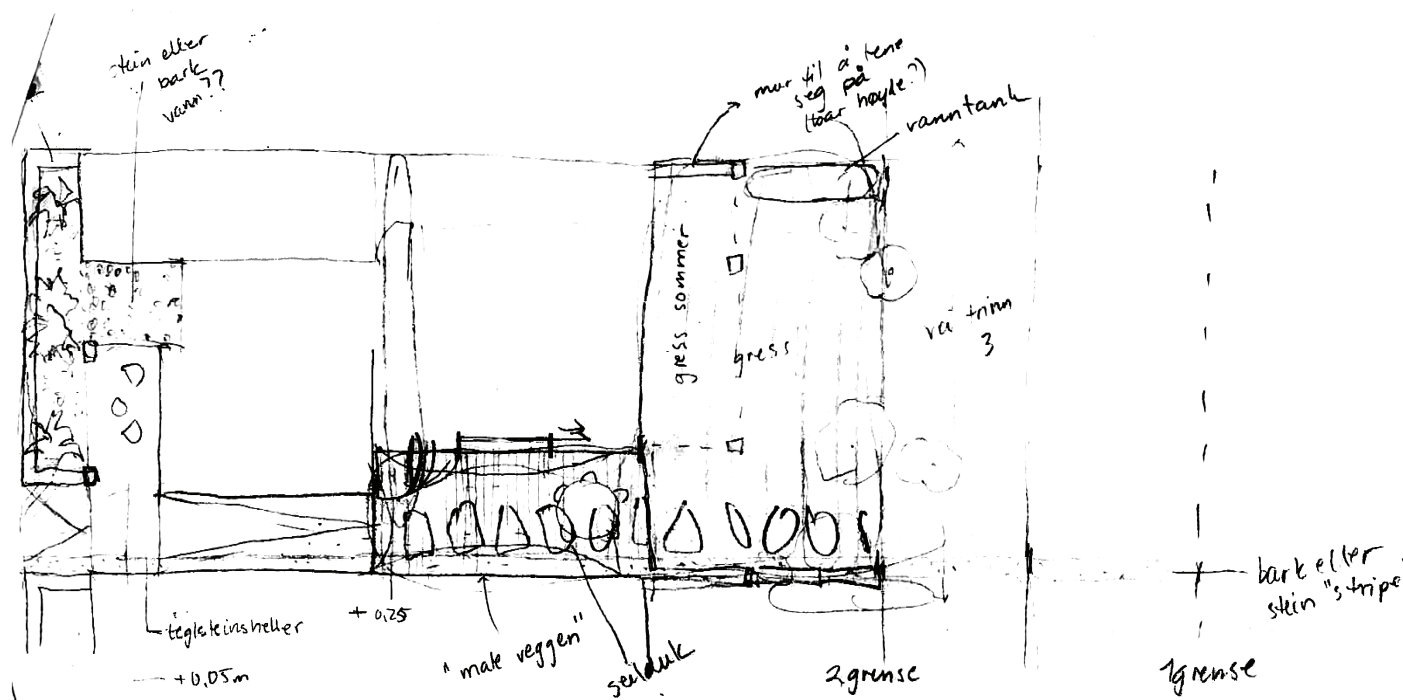 stein eller
bark
vann??
mur til å lene
seg på
(hvor høyde?)
vanntank
gress sommer
gress
vei trinn
3
bark eller
stein "stripe"
teglsteinsheller
+0,05m
+ 0,25
"male veggen"
seilduk
2grense
1grense